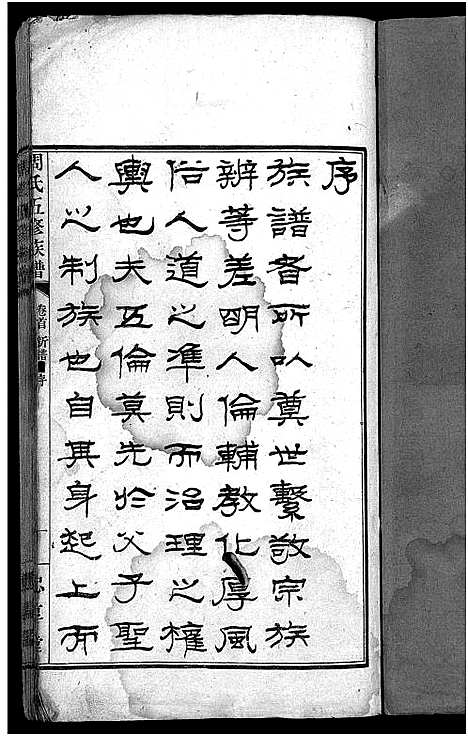 序
族譜者所以奠世繫敬宗族
辨等差明人倫輔教化厚風
俗人道之準則而治理之權
輿也夫五倫莫先於父子聖
人之制族也自其身起上而
周氏五修族譜
卷首 新譜序
一